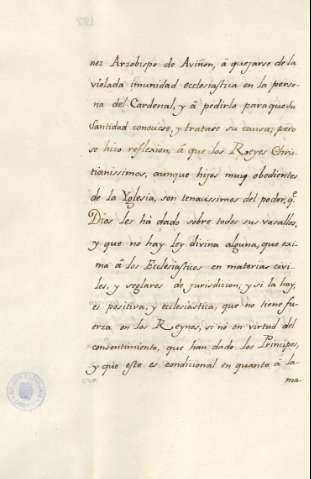 nez Arzobispo de Aviñon, â quejarse de la
violada imunidad ecclesiastica en la perso-
na del Cardenal, y â pedirla para que su
Santidad conociese, y tratase su causa; pero
se hizo reflexion, â que los Reyes Chris-
tianissimos, aunque hijos muy obedientes
de la Yglesia, son tenacissimos del poder, q.e
Dios les hà dado sobre todos sus vasallos,
y que no hay Ley divina alguna, que exi-
ma â los Ecclesiasticos en materias civi-
les, y seglares de jurisdicion, y si la hay,
es positiva, y ecclesiastica, que no tiene fu-
erza en los Reynos, si nó en virtud del
consentimiento, que han dado los Principes,
y que este es condicional en quanto â la
ma